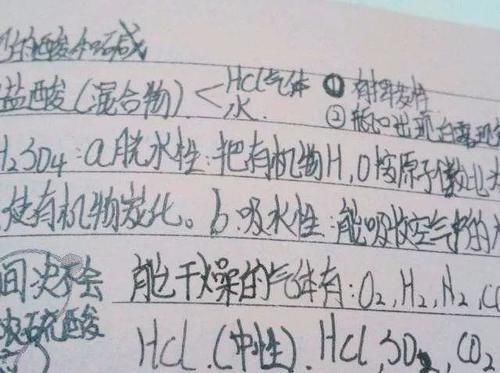 的酸和碱
盐酸(混合物) < HCl气体 ① 有挥发性
水 ② 瓶口出现白雾现
H₂SO₄:a.脱水性:把有机物H,O按原子个数比
使有机物炭化。b.吸水性:能吸收空气中的
能干燥的气体有:O₂,H₂,N₂,CO
浓硫酸
HCl.(中性).HCl,SO₂,CO₂